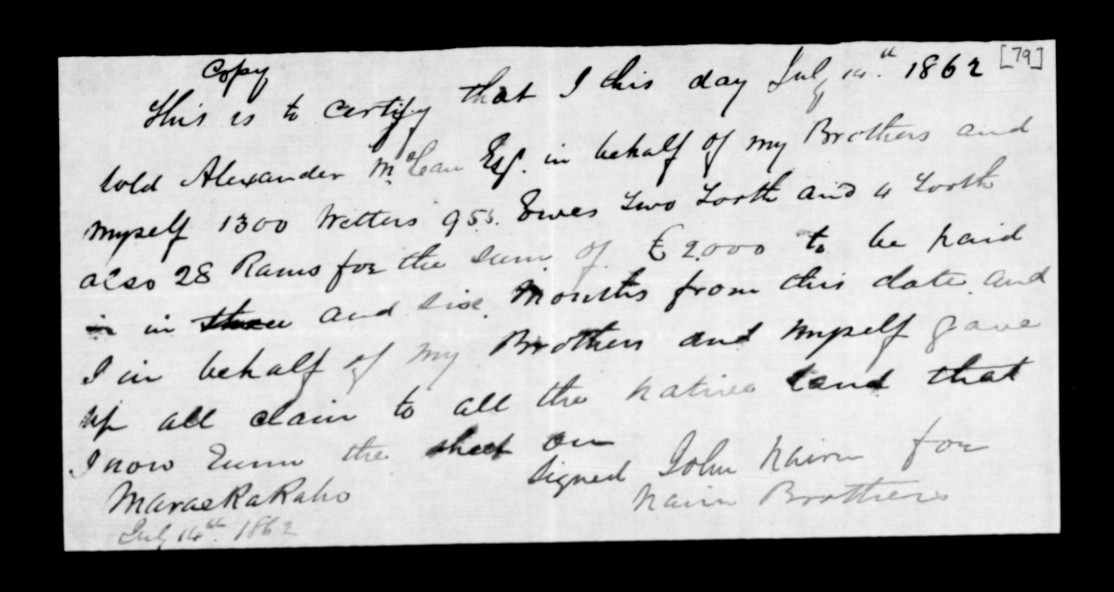 Copy
This is to certify that I this day July 14th. 1862 [79]
sold Alexander McLean Esq. in behalf of my Brothers and
myself 1300 Wetters 955. Ewes Two Tooth and 4 Tooth
also 28 Rams for the sum of £2,000 to be paid
in in three and six Months from this date and
I in behalf of my Brothers and Myself gave
up all claim to all the native land that
I now Runn the sheep on
Signed John Nairn for
Nairn Brothers
MaraeKaKaho
July 14th. 1862